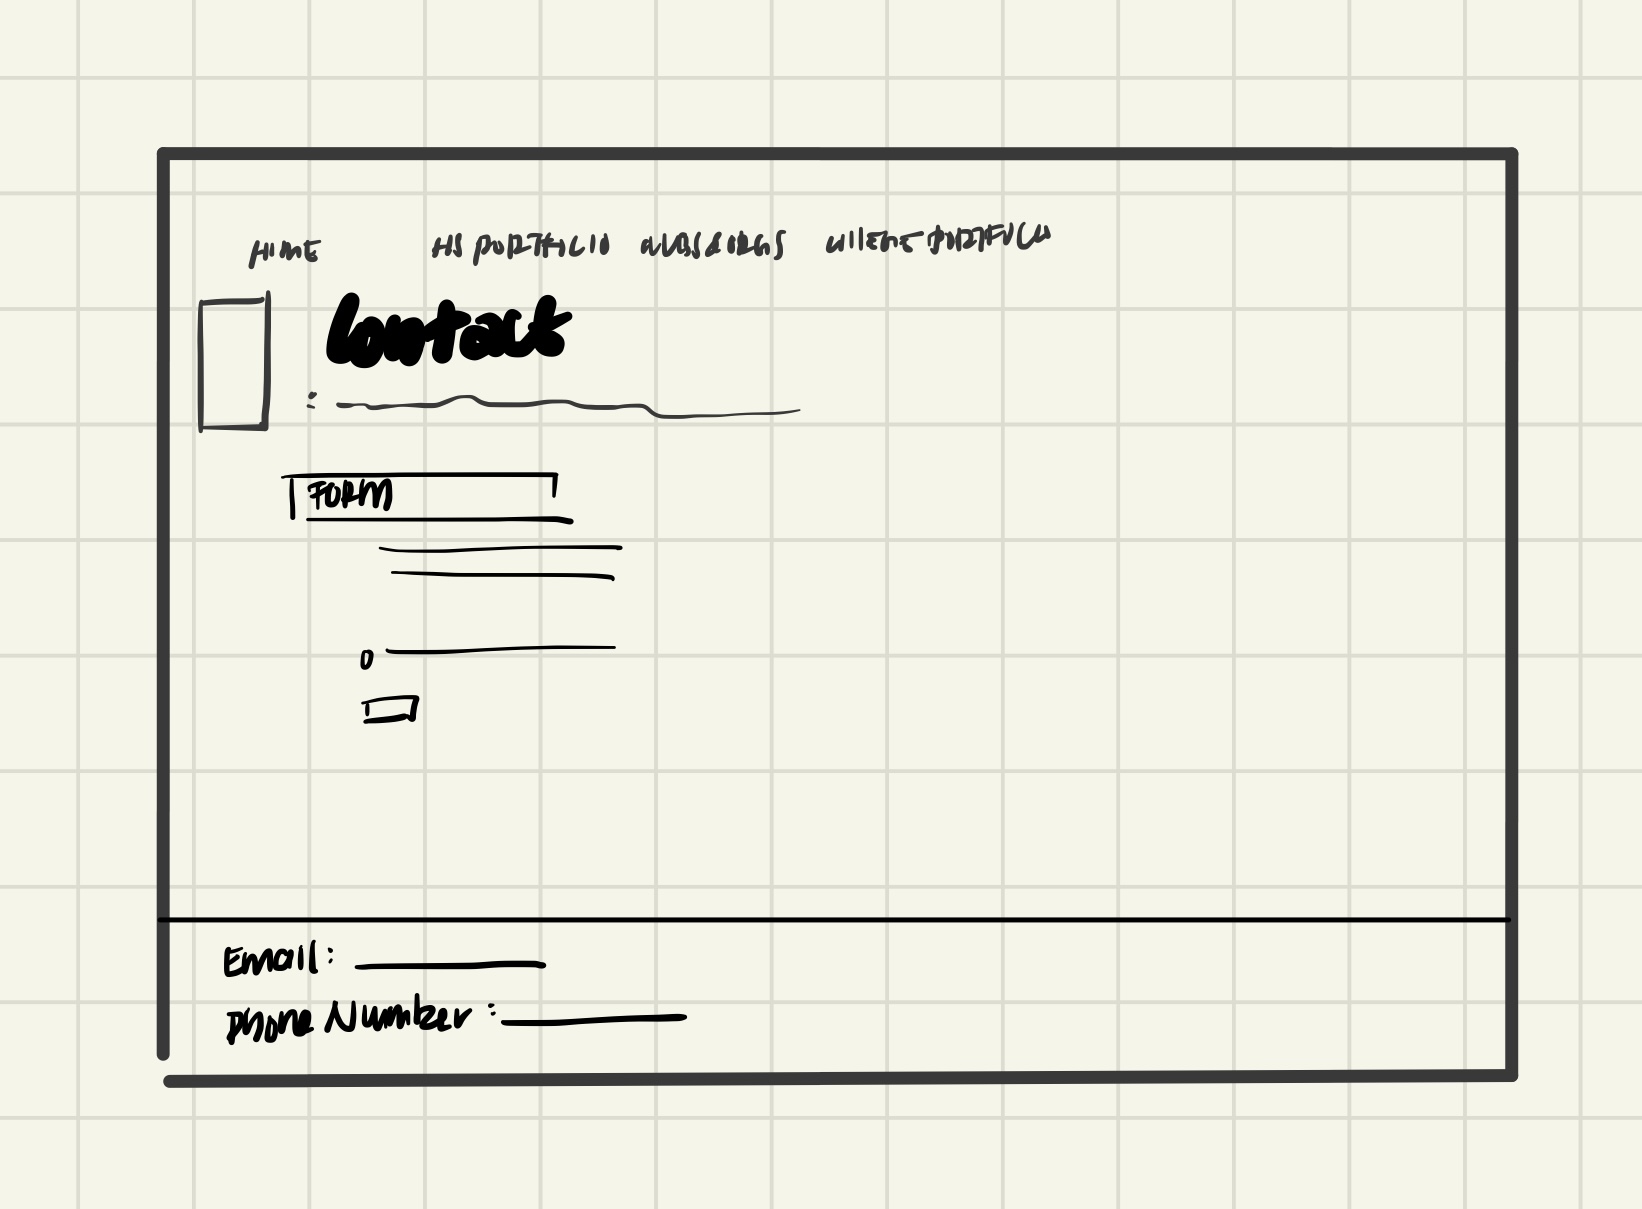 HOME HS PORTFOLIO COLLEGE PORTFOLIO
Contact
FORM
Email:
Phone Number: